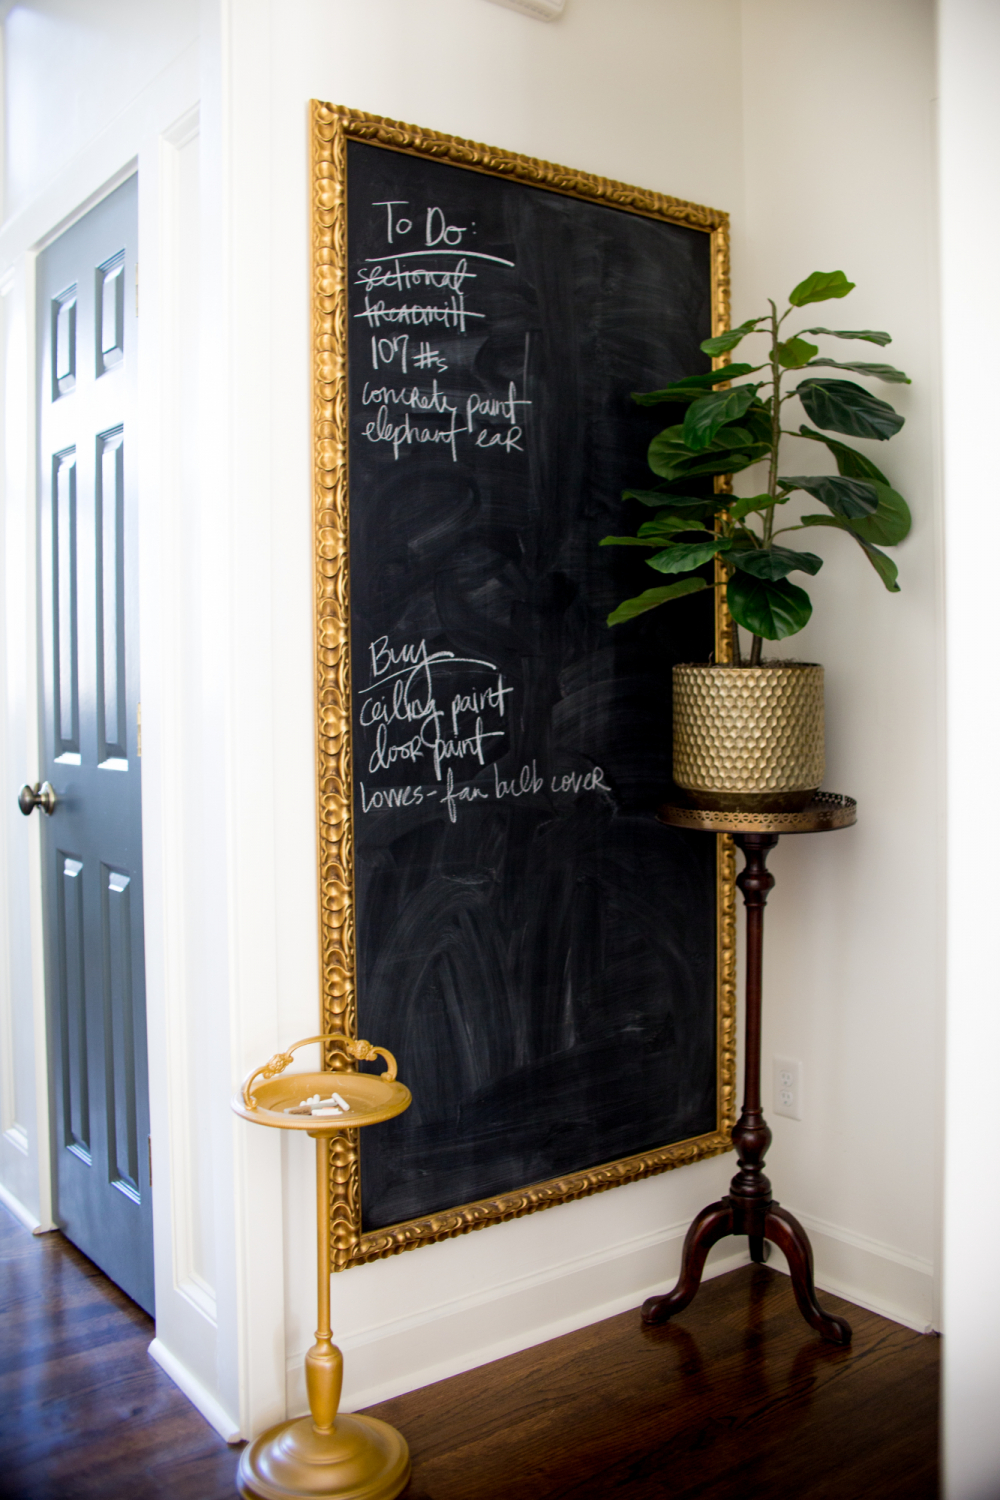 To Do:
sectional
treadmill
107 #s
concrete paint
elephant ear
Buy
ceiling paint
door paint
Lowes - fan bulb cover